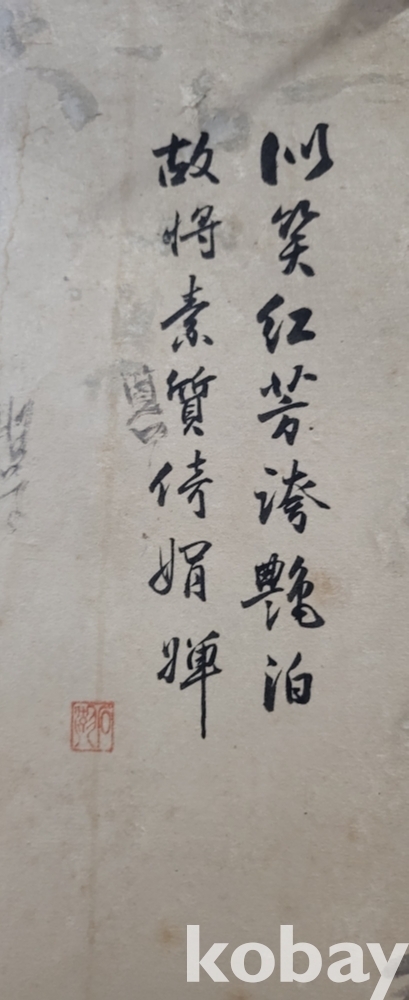 似笑红芳誇艷泊
故将素質倚娟婵
kobay